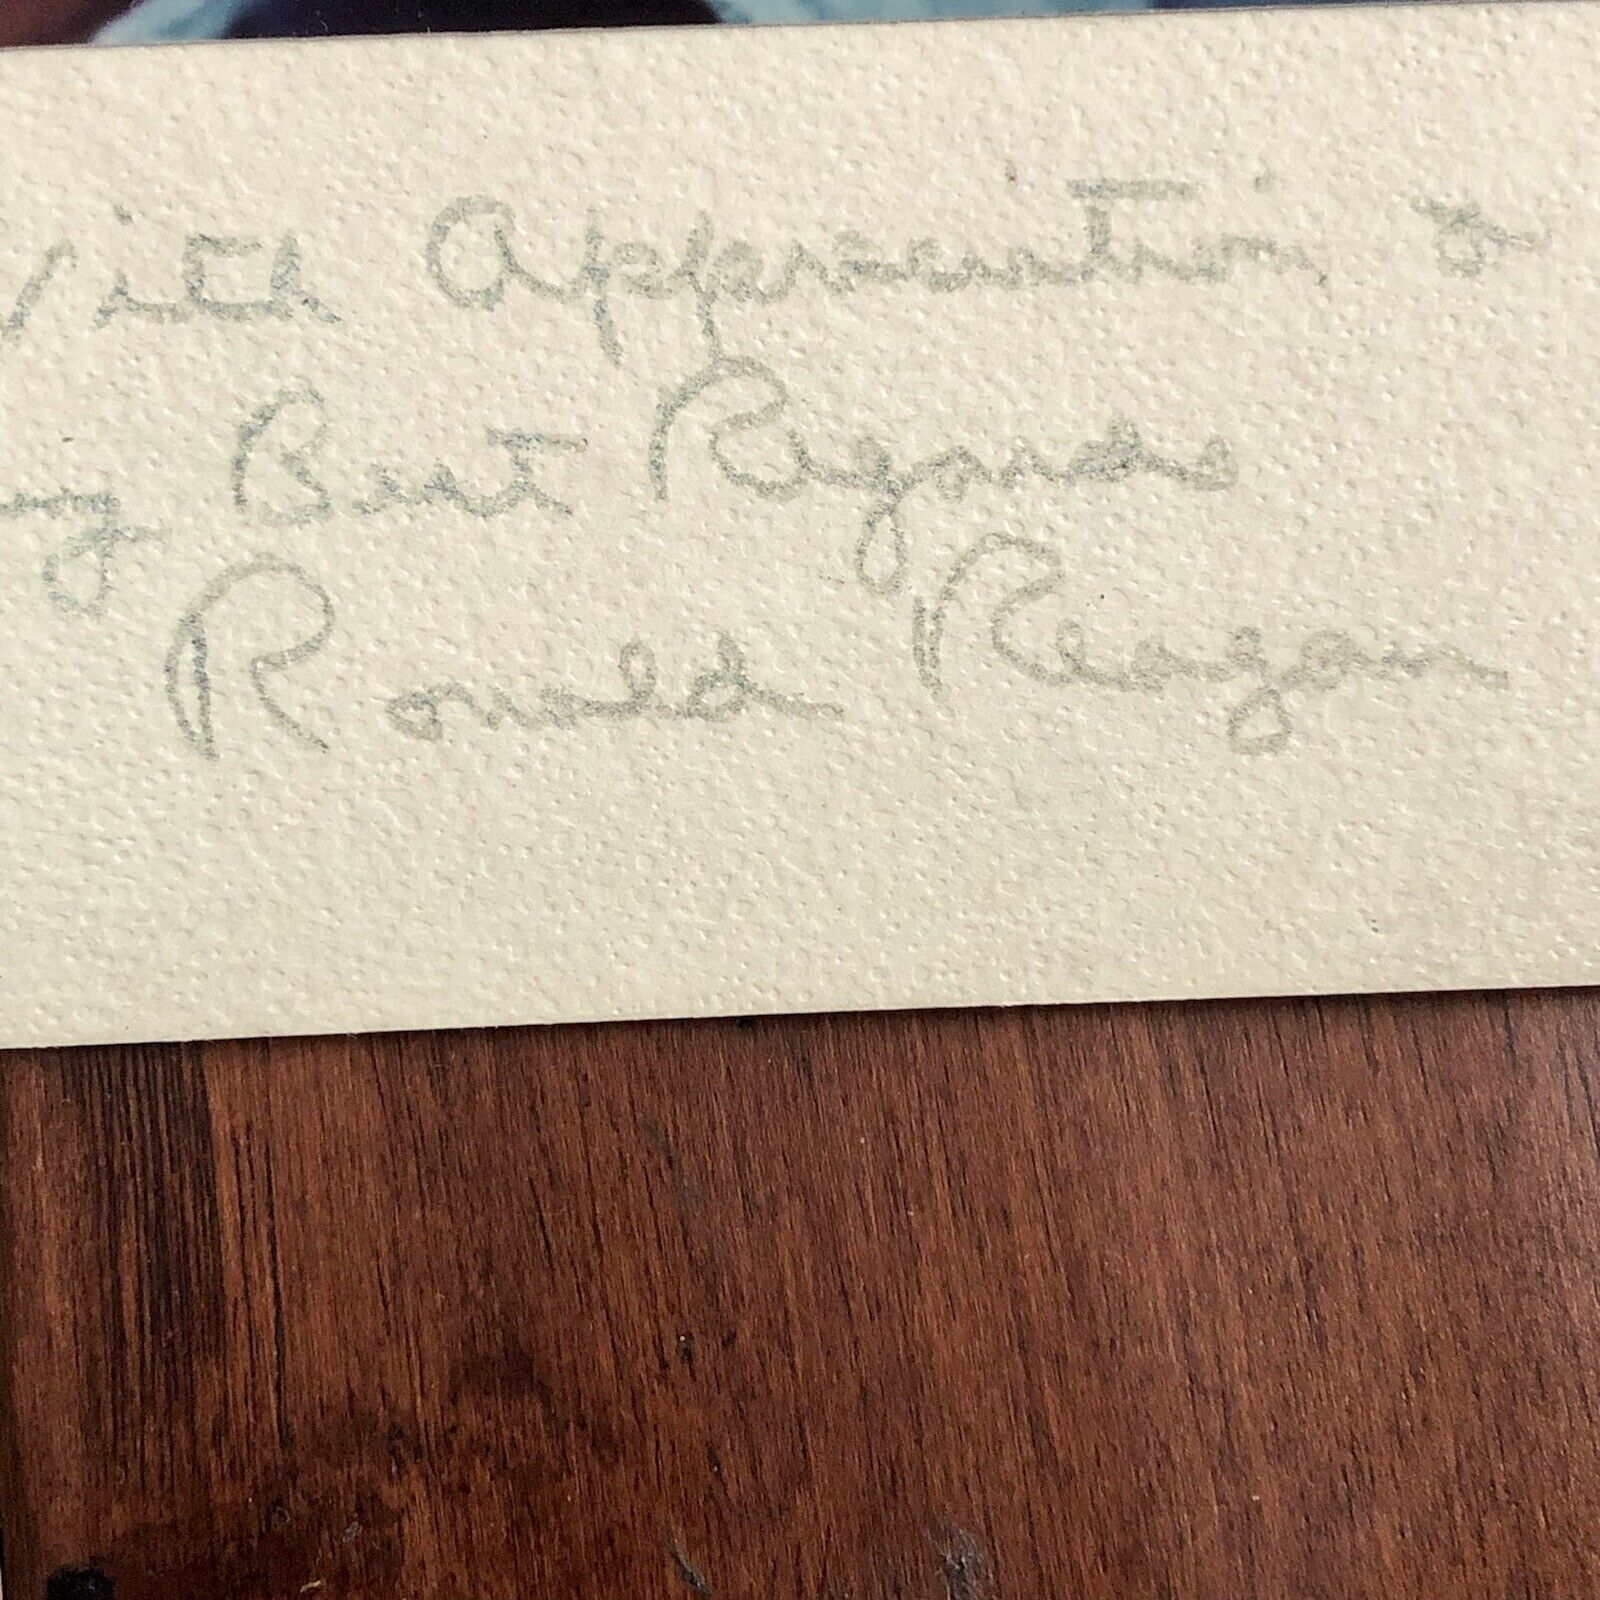 With Appreciation, &
Very Best Regards
Ronald Reagan